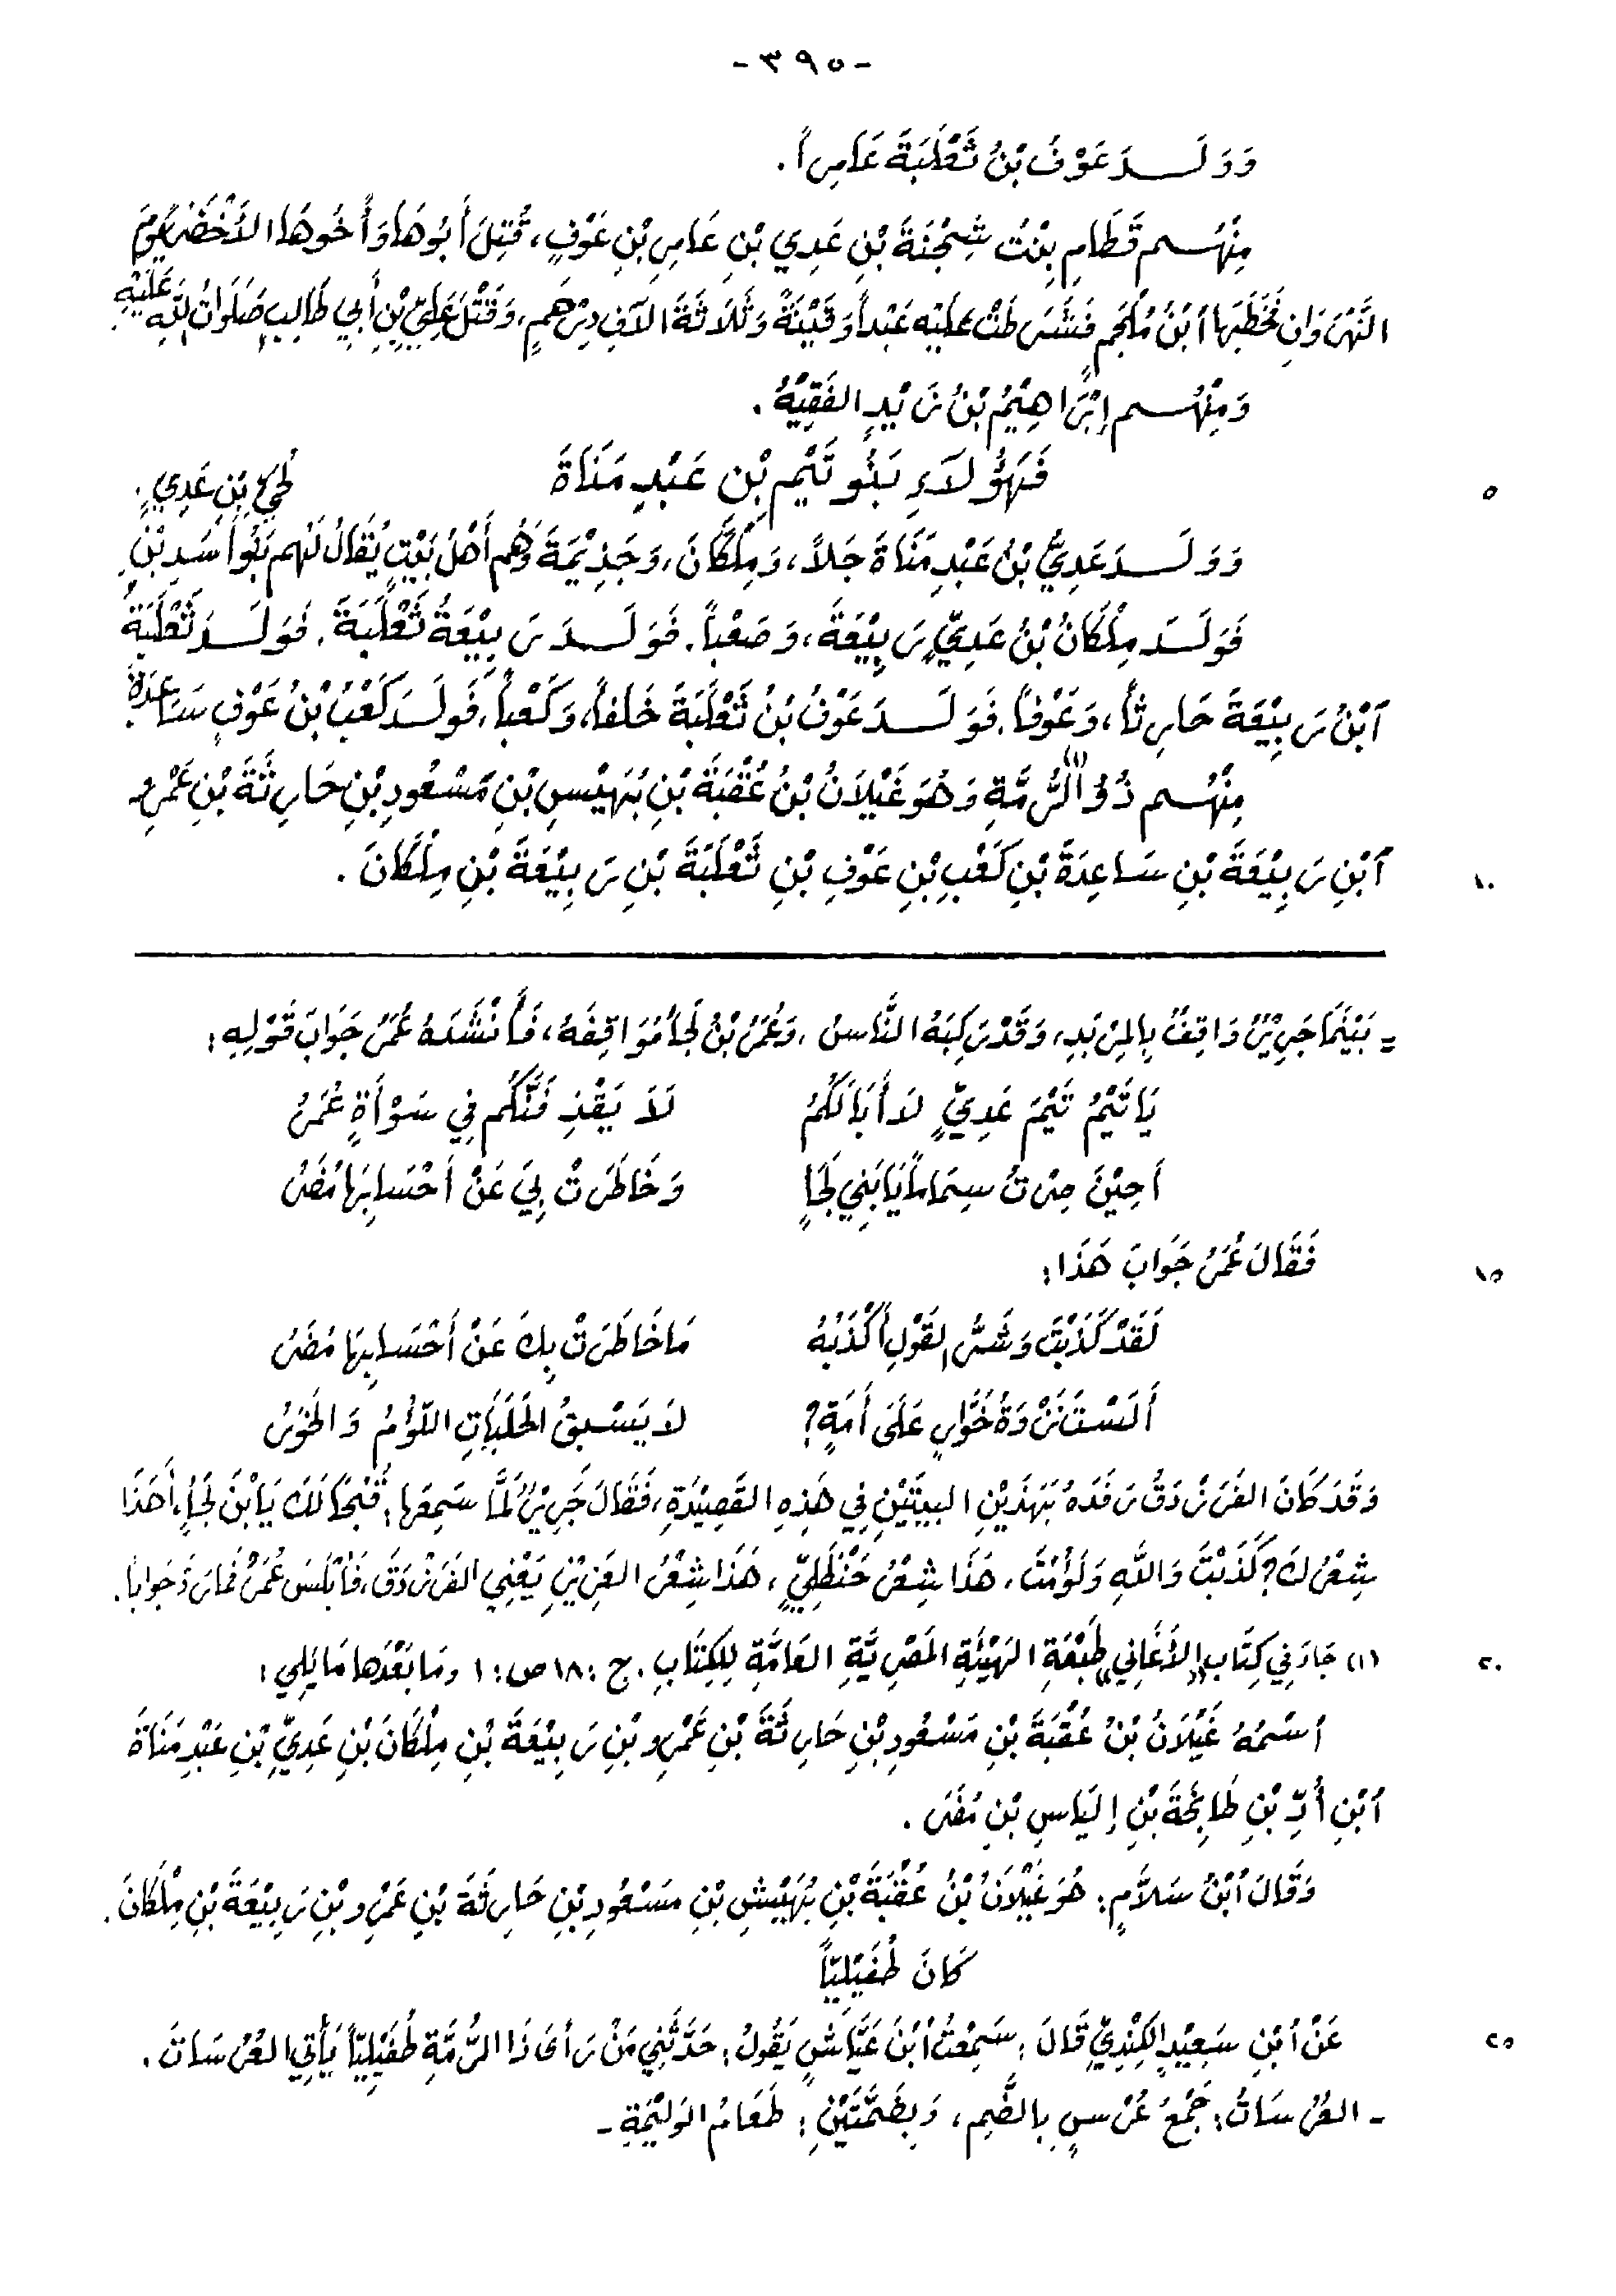 -٣٩٥-
وَوَلَدَ عَوْفُ بْنُ ثَعْلَبَةَ عَامِراً .
مِنْهُم قَطَامِ بِنْتُ شِجْنَةَ بْنِ عَدِي بْنِ عَامِرِ بْنِ عَوْفٍ، قُتِلَ أَبُوهَا وَأَخُوهَا الأَخْضَرُ يَوْمَ
النَّهْرَوَانِ فَخَطَبَهَا ٱبْنُ مُلْجَمٍ فَشَرَطَتْ عَلَيْهِ عَبْداً وَقَيْنَةً وَثَلَاثَةَ الآفِ دِرْهَمٍ، وَقَتْلَ عَلِيِّ بْنِ أَبِي طَالِبٍ صَلَوَاتُ اللّهِ عَلَيْهِ .
وَمِنْهُم إِبْرَاهِيْمُ بْنُ زَيْدٍ الفَقِيْهُ .
فَهَؤُلَاءِ بَنُو تَيْمِ بْنِ عَبْدِ مَنَاةَ
٥
وَوَلَدَ عَدِيُّ بْنُ عَبْدِ مَنَاةَ جَلاً، وَمِلْكَانَ، وَجَذِيْمَةَ وَهُم أَهْلُ بَيْتٍ يُقَالُ لَهُم بَنُو أَسَدِ بْنِ لُحَيِّ بْنِ عَدِيٍّ .
فَوَلَدَ مِلْكَانُ بْنُ عَدِيٍّ رَبِيْعَةَ، وَصَعْباً. فَوَلَدَ رَبِيْعَةُ ثَعْلَبَةَ. فَوَلَدَ ثَعْلَبَةُ
ٱبْنُ رَبِيْعَةَ حَارِثاً، وَعَوْفاً. فَوَلَدَ عَوْفُ بْنُ ثَعْلَبَةَ خَلَفاً، وَكَعْباً. فَوَلَدَ كَعْبُ بْنُ عَوْفٍ سَاعِدَةَ .
مِنْهُم ذُو الرُّمَّةِ (١) وَهُوَ غَيْلَانُ بْنُ عُقْبَةَ بْنِ بُهَيْسِ بْنِ مَسْعُودِ بْنِ حَارِثَةَ بْنِ عَمْرِو
ٱبْنِ رَبِيْعَةَ بْنِ سَاعِدَةَ بْنِ كَعْبِ بْنِ عَوْفِ بْنِ ثَعْلَبَةَ بْنِ رَبِيْعَةَ بْنِ مِلْكَانَ .
١٠
= بَيْنَمَا جَرِيْرٌ وَاقِفٌ بِالمِرْبَدِ، وَقَدْ رَكِبَهُ النَّاسُ، وَعُمَرُ بْنُ لَجَأ مُوَاقِفَهُ، فَأَنْشَدَهُ عُمَرُ جَوَابَ قَوْلِهِ :
يَا تَيْمُ تَيْمَ عَدِيٍّ لَا أَبَا لَكُمُ لَا يَقْذِفَنَّكُم فِي سَوْأَةٍ عُمَرُ
أَحِيْنَ صِرْتُ سِمَاماً يَا بَنِي لَجَإٍ وَخَاطَرَتْ بِيَ عَنْ أَحْسَابِهَا مُضَرُ
فَقَالَ عُمَرُ جَوَابَ هَذَا :
١٥
لَقَدْ كَذَبْتَ وَشَرُّ القَوْلِ أَكْذَبُهُ مَا خَاطَرَتْ بِكَ عَنْ أَحْسَابِهَا مُضَرُ
أَلَسْتَ نَزْوَةُ خَوَّارٍ عَلَى أَمَةٍ؟ لَا يَسْبِقُ الحَلَبَاتِ اللُّؤْمُ وَالخَوَرُ
وَقَدَ كَانَ الفَرَزْدَقُ رَفَدَهُ بَهَذَيْنِ البيتَيْنِ فِي هَذِهِ القَصِيْدَةِ، فَقَالَ جَرِيْرٌ لَمَّا سَمِعَهَا : قُبْحًا لَكَ يَا بْنَ لَجَأٍ، أَهَذَا
شِعْرُكَ؟ كَذَبْتَ وَاللّهِ وَلَؤُمْتَ، هَذَا شِعْرُ حَنْظَلِيٍّ، هَذَا شِعْرُ العَزِيْزِ يَعْنِي الفَرَزْدَقَ، فَأَبْلَسَ عُمَرُ فَمَا رَدَّ جَوَاباً .
(١) جَاءَ فِي كِتَابِ «الأَغَانِي» طَبْعَةِ الهَيْئَةِ المَصْرِيَّةِ العَامَّةِ لِلكِتَابِ . ج : ١٨ ص : ١ وَمَا بَعْدَهَا مَا يَلِي :
٢٠
ٱسْمُهُ غَيْلَانُ بْنُ عُقْبَةَ بْنِ مَسْعُودِ بْنِ حَارِثَةَ بْنِ عَمْرِو بْنِ رَبِيْعَةَ بْنِ مِلْكَانَ بْنِ عَدِيِّ بْنِ عَبْدِ مَنَاةَ
ٱبْنِ أُدِّ بْنِ طَابِخَةَ بْنِ إِليَاسِ بْنِ مُضَرَ .
وَقَالَ ٱبْنُ سَلاَّمٍ : هُوَ غَيْلَانُ بْنُ عُقْبَةَ بْنِ بُهَيْشِ بْنِ مَسْعُودِ بْنِ حَارِثَةَ بْنِ عَمْرِو بْنِ رَبِيْعَةَ بْنِ مِلْكَانَ .
كَانَ طُفَيْلِيّاً
عَنْ ٱبْنِ سَعِيْدٍ الكِنْدِيِّ قَالَ : سَمِعْتُ ٱبْنَ عَيَّاشٍ يَقُولُ : حَدَّثَنِي مَنْ رَأَى ذَا الرُّمَّةِ طُفَيْلِيّاً يَأْتِي العُرُسَاتَ .
٢٥
- العُرُسَاتُ : جَمْعُ عُرْسٍ بِالضَّمِ، وَبِضَمَّتَيْنِ : طَعَامُ الوَلِيْمَةِ -